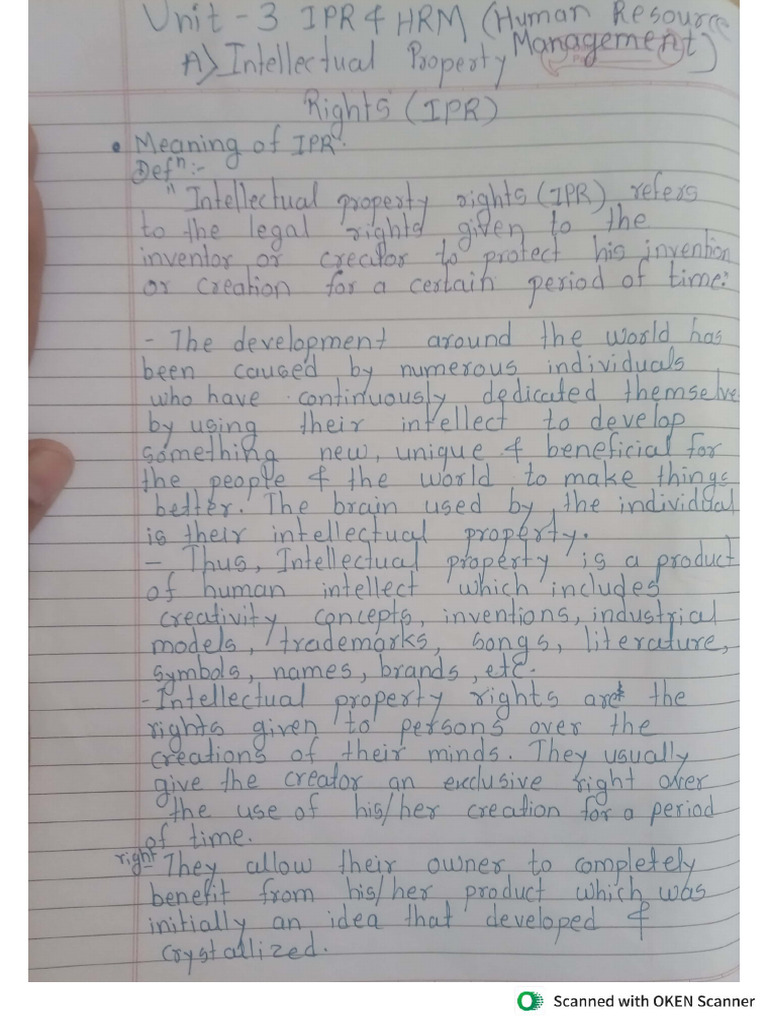 Unit - 3 IPR & HRM (Human Resource
Management)
A) Intellectual Property
Rights (IPR)
• Meaning of IPR:
Defn:-
" Intellectual property rights (IPR) refers
to the legal rights given to the
inventor or creator to protect his invention
or creation for a certain period of time."
- The development around the world has
been caused by numerous individuals
who have continuously dedicated themselve
by using their intellect to develop
something new, unique & beneficial for
the people & the world to make things
better. The brain used by the individual
is their intellectual property.
- Thus, Intellectual property is a product
of human intellect which includes
creativity concepts, inventions, industrial
models, trademarks, songs, literature,
symbols, names, brands, etc.
- Intellectual property rights are the
rights given to persons over the
creations of their minds. They usually
give the creator an exclusive right over
the use of his/her creation for a period
of time.
right They allow their owner to completely
benefit from his/her product which was
initially an idea that developed &
crystallized.
Scanned with OKEN Scanner